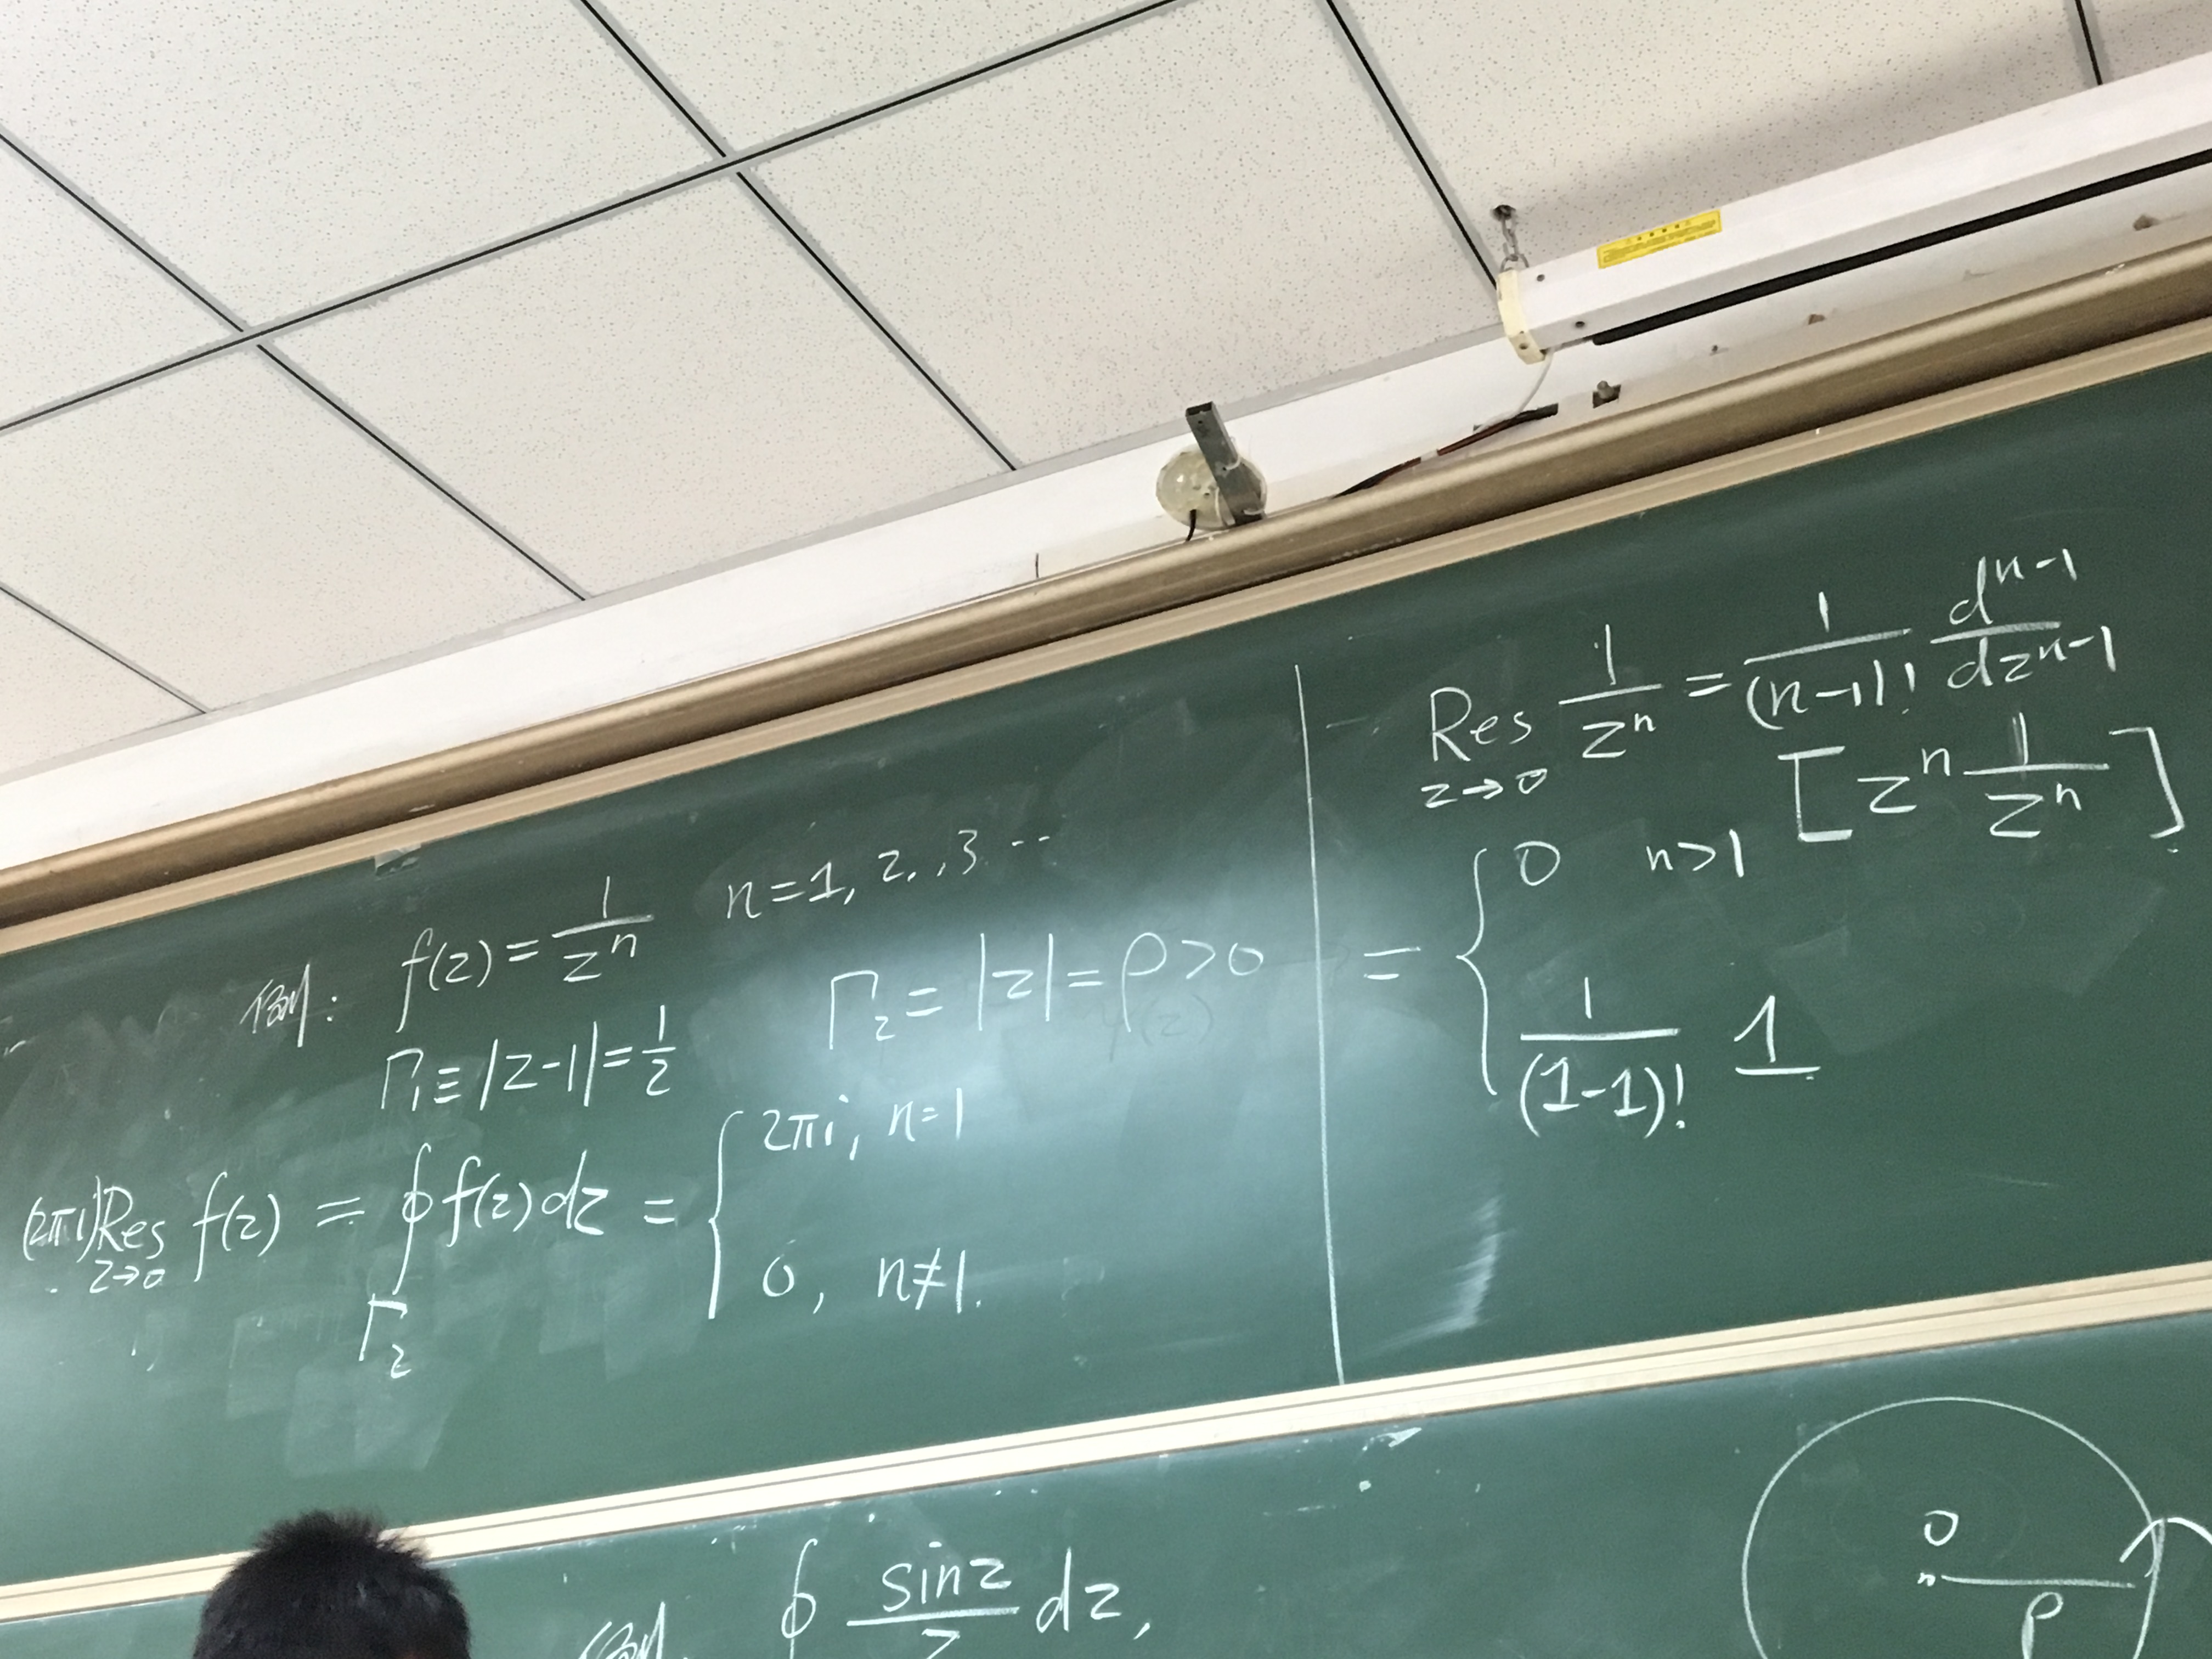 例: f(z) = 1/zⁿ n=1, 2, ,3 ...
Γ₁ ≡ |z-1| = 1/2 Γ₂ = |z| = ρ > 0
(2πi) Res_{z→0} f(z) = ∮_{Γ₂} f(z) dz = { 2πi, n=1
0, n≠1.
Res_{z→0} 1/zⁿ = 1/(n-1)! dⁿ⁻¹/dzⁿ⁻¹
[zⁿ 1/zⁿ]
= { 0 n>1
1/(1-1)! 1
例. ∮ sinz/z dz,
0
ρ